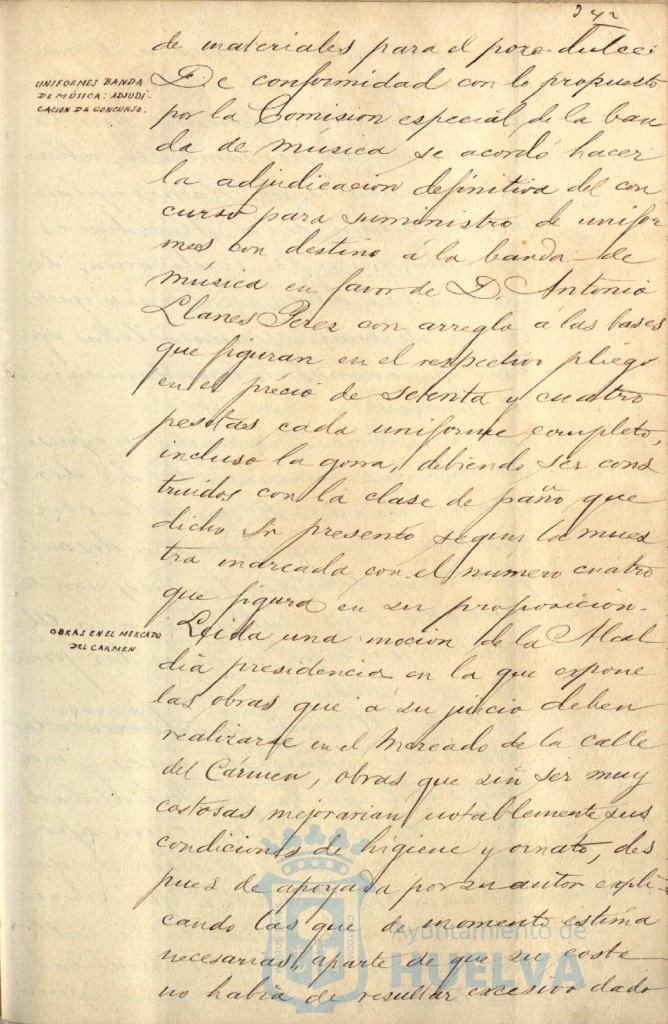 342
de materiales para el pozo dulce.
UNIFORMES BANDA
DE MÚSICA: ADJUDI-
CACION DE CONCURSO.
De conformidad con lo propuesto
por la Comision especial de la ban
da de música se acordó hacer
la adjudicacion definitiva del con
curso para suministro de unifor
mes con destino á la banda de
música en favor de D. Antonio
Llanes Perez con arreglo á las bases
que figuran en el respectivo pliego
en el précio de setenta y cuatro
pesetas cada uniforme completo,
incluso la gorra, debiendo ser cons
truidos con la clase de paño que
dicho Sr presentó segun la mues
tra marcada con el número cuatro
que figura en su proposicion.
OBRAS EN EL MERCADO
DEL CARMEN
Leida una mocion de la Alcal
dia presidencia en la que expone
las obras que á su juicio deben
realizarse en el Mercado de la calle
del Cármen, obras que sin ser muy
costosas mejorarian notablemente sus
condiciones de higiene y ornato, des
pues de apoyada por su autor expli-
cando las que de momento estima
necesarias, aparte de que su coste
no habia de resultar excesivo dado
Ayuntamiento de
HUELVA